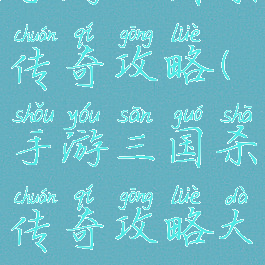 chuán qí gōng lüè
传奇攻略(
shǒu yóu sān guó shā
手游三国杀
chuán qí gōng lüè dà
传奇攻略大